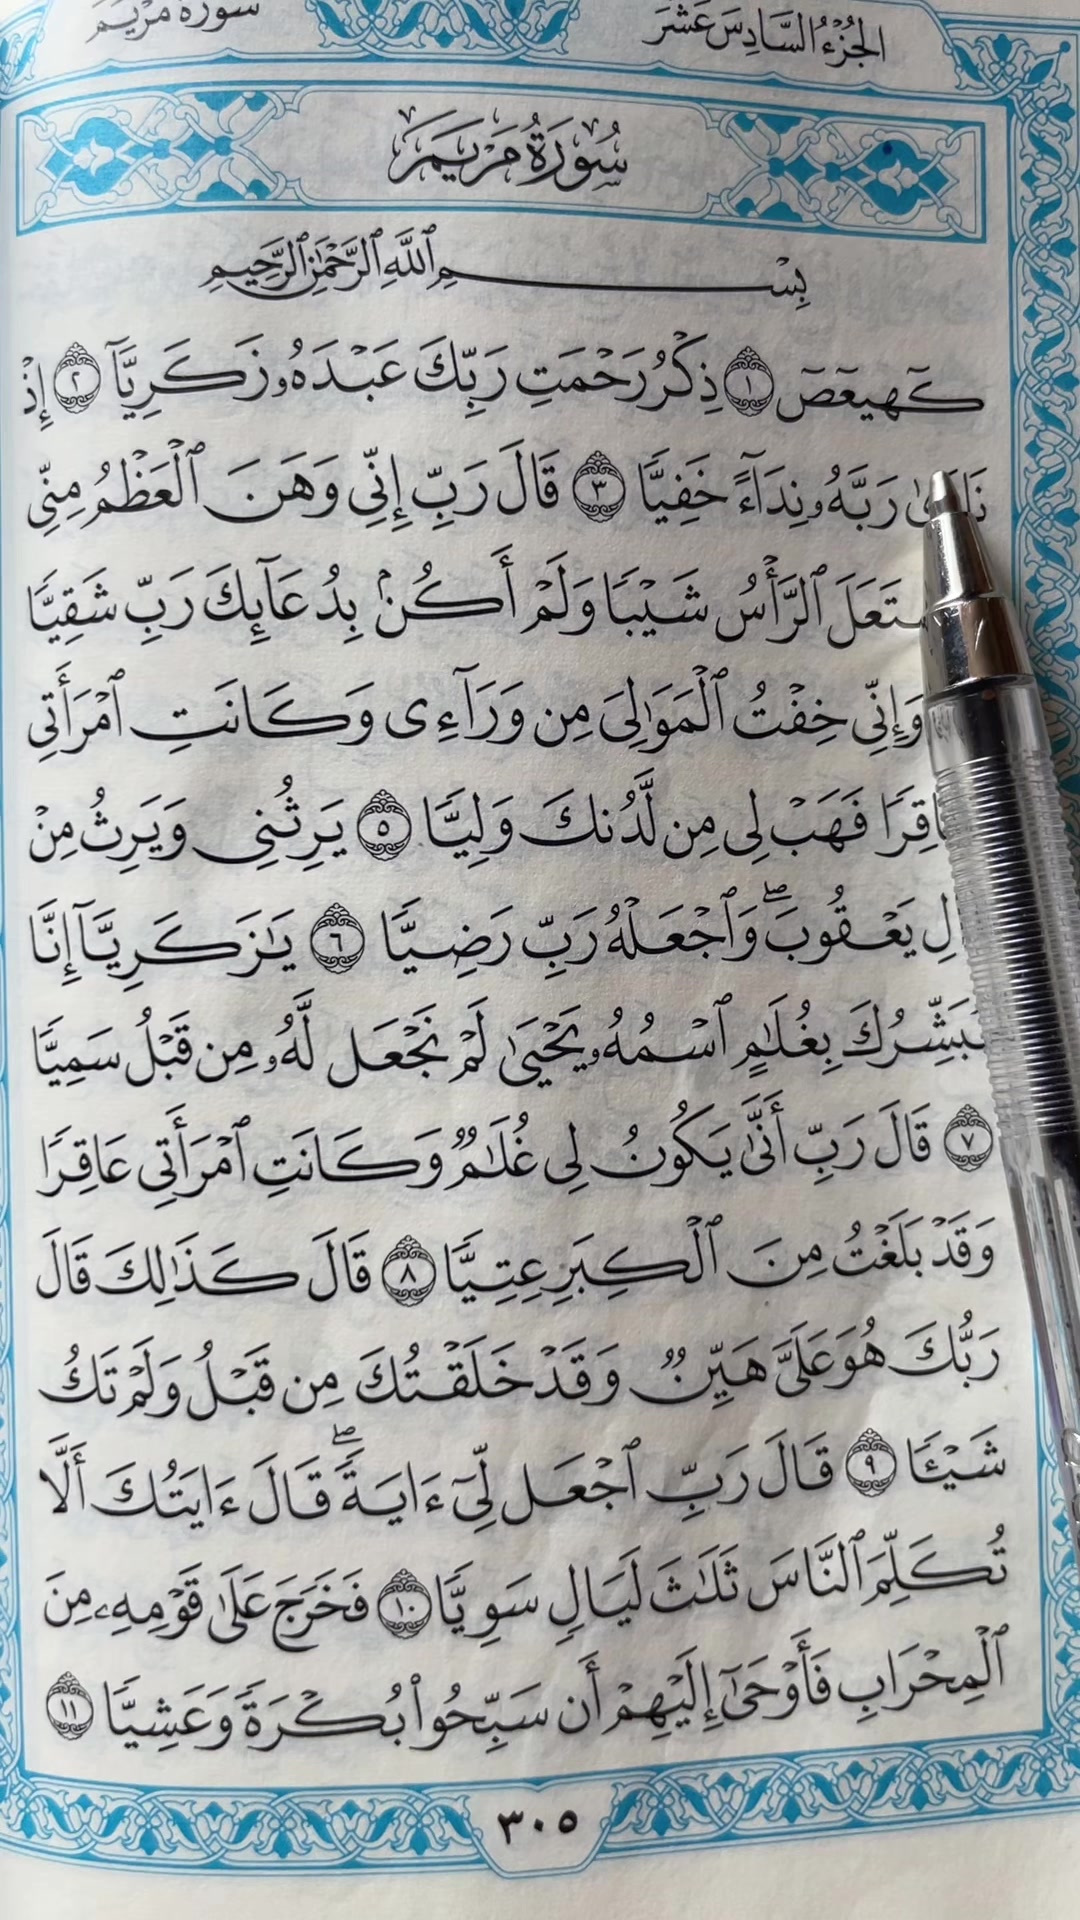 الجُزْءُ السَّادِسَ عَشَرَ
سُورَةُ مَرْيَم
سُورَةُ مَرۡيَمَ
بِسۡمِ ٱللَّهِ ٱلرَّحۡمَٰنِ ٱلرَّحِيمِ
كٓهيعٓصٓ ١ ذِكۡرُ رَحۡمَتِ رَبِّكَ عَبۡدَهُۥ زَكَرِيَّآ ٢ إِذۡ
رَبَّهُۥ نِدَآءً خَفِيّٗا ٣ قَالَ رَبِّ إِنِّي وَهَنَ ٱلۡعَظۡمُ مِنِّي
ٱلرَّأۡسُ شَيۡبٗا وَلَمۡ أَكُنۢ بِدُعَآئِكَ رَبِّ شَقِيّٗا
وَإِنِّي خِفۡتُ ٱلۡمَوَٰلِيَ مِن وَرَآءِي وَكَانَتِ ٱمۡرَأَتِي
فَهَبۡ لِي مِن لَّدُنكَ وَلِيّٗا ٥ يَرِثُنِي وَيَرِثُ مِنۡ
يَعۡقُوبَۖ وَٱجۡعَلۡهُ رَبِّ رَضِيّٗا ٦ يَٰزَكَرِيَّآ إِنَّا
نُبَشِّرُكَ بِغُلَٰمٍ ٱسۡمُهُۥ يَحۡيَىٰ لَمۡ نَجۡعَل لَّهُۥ مِن قَبۡلُ سَمِيّٗا
٧ قَالَ رَبِّ أَنَّىٰ يَكُونُ لِي غُلَٰمٞ وَكَانَتِ ٱمۡرَأَتِي عَاقِرٗا
وَقَدۡ بَلَغۡتُ مِنَ ٱلۡكِبَرِ عِتِيّٗا ٨ قَالَ كَذَٰلِكَ قَالَ
رَبُّكَ هُوَ عَلَيَّ هَيِّنٞ وَقَدۡ خَلَقۡتُكَ مِن قَبۡلُ وَلَمۡ تَكُ
شَيۡـٔٗا ٩ قَالَ رَبِّ ٱجۡعَل لِّيٓ ءَايَةٗۖ قَالَ ءَايَتُكَ أَلَّا
تُكَلِّمَ ٱلنَّاسَ ثَلَٰثَ لَيَالٖ سَوِيّٗا ١٠ فَخَرَجَ عَلَىٰ قَوۡمِهِۦ مِنَ
ٱلۡمِحۡرَابِ فَأَوۡحَىٰٓ إِلَيۡهِمۡ أَن سَبِّحُواْ بُكۡرَةٗ وَعَشِيّٗا ١١
٣٠٥